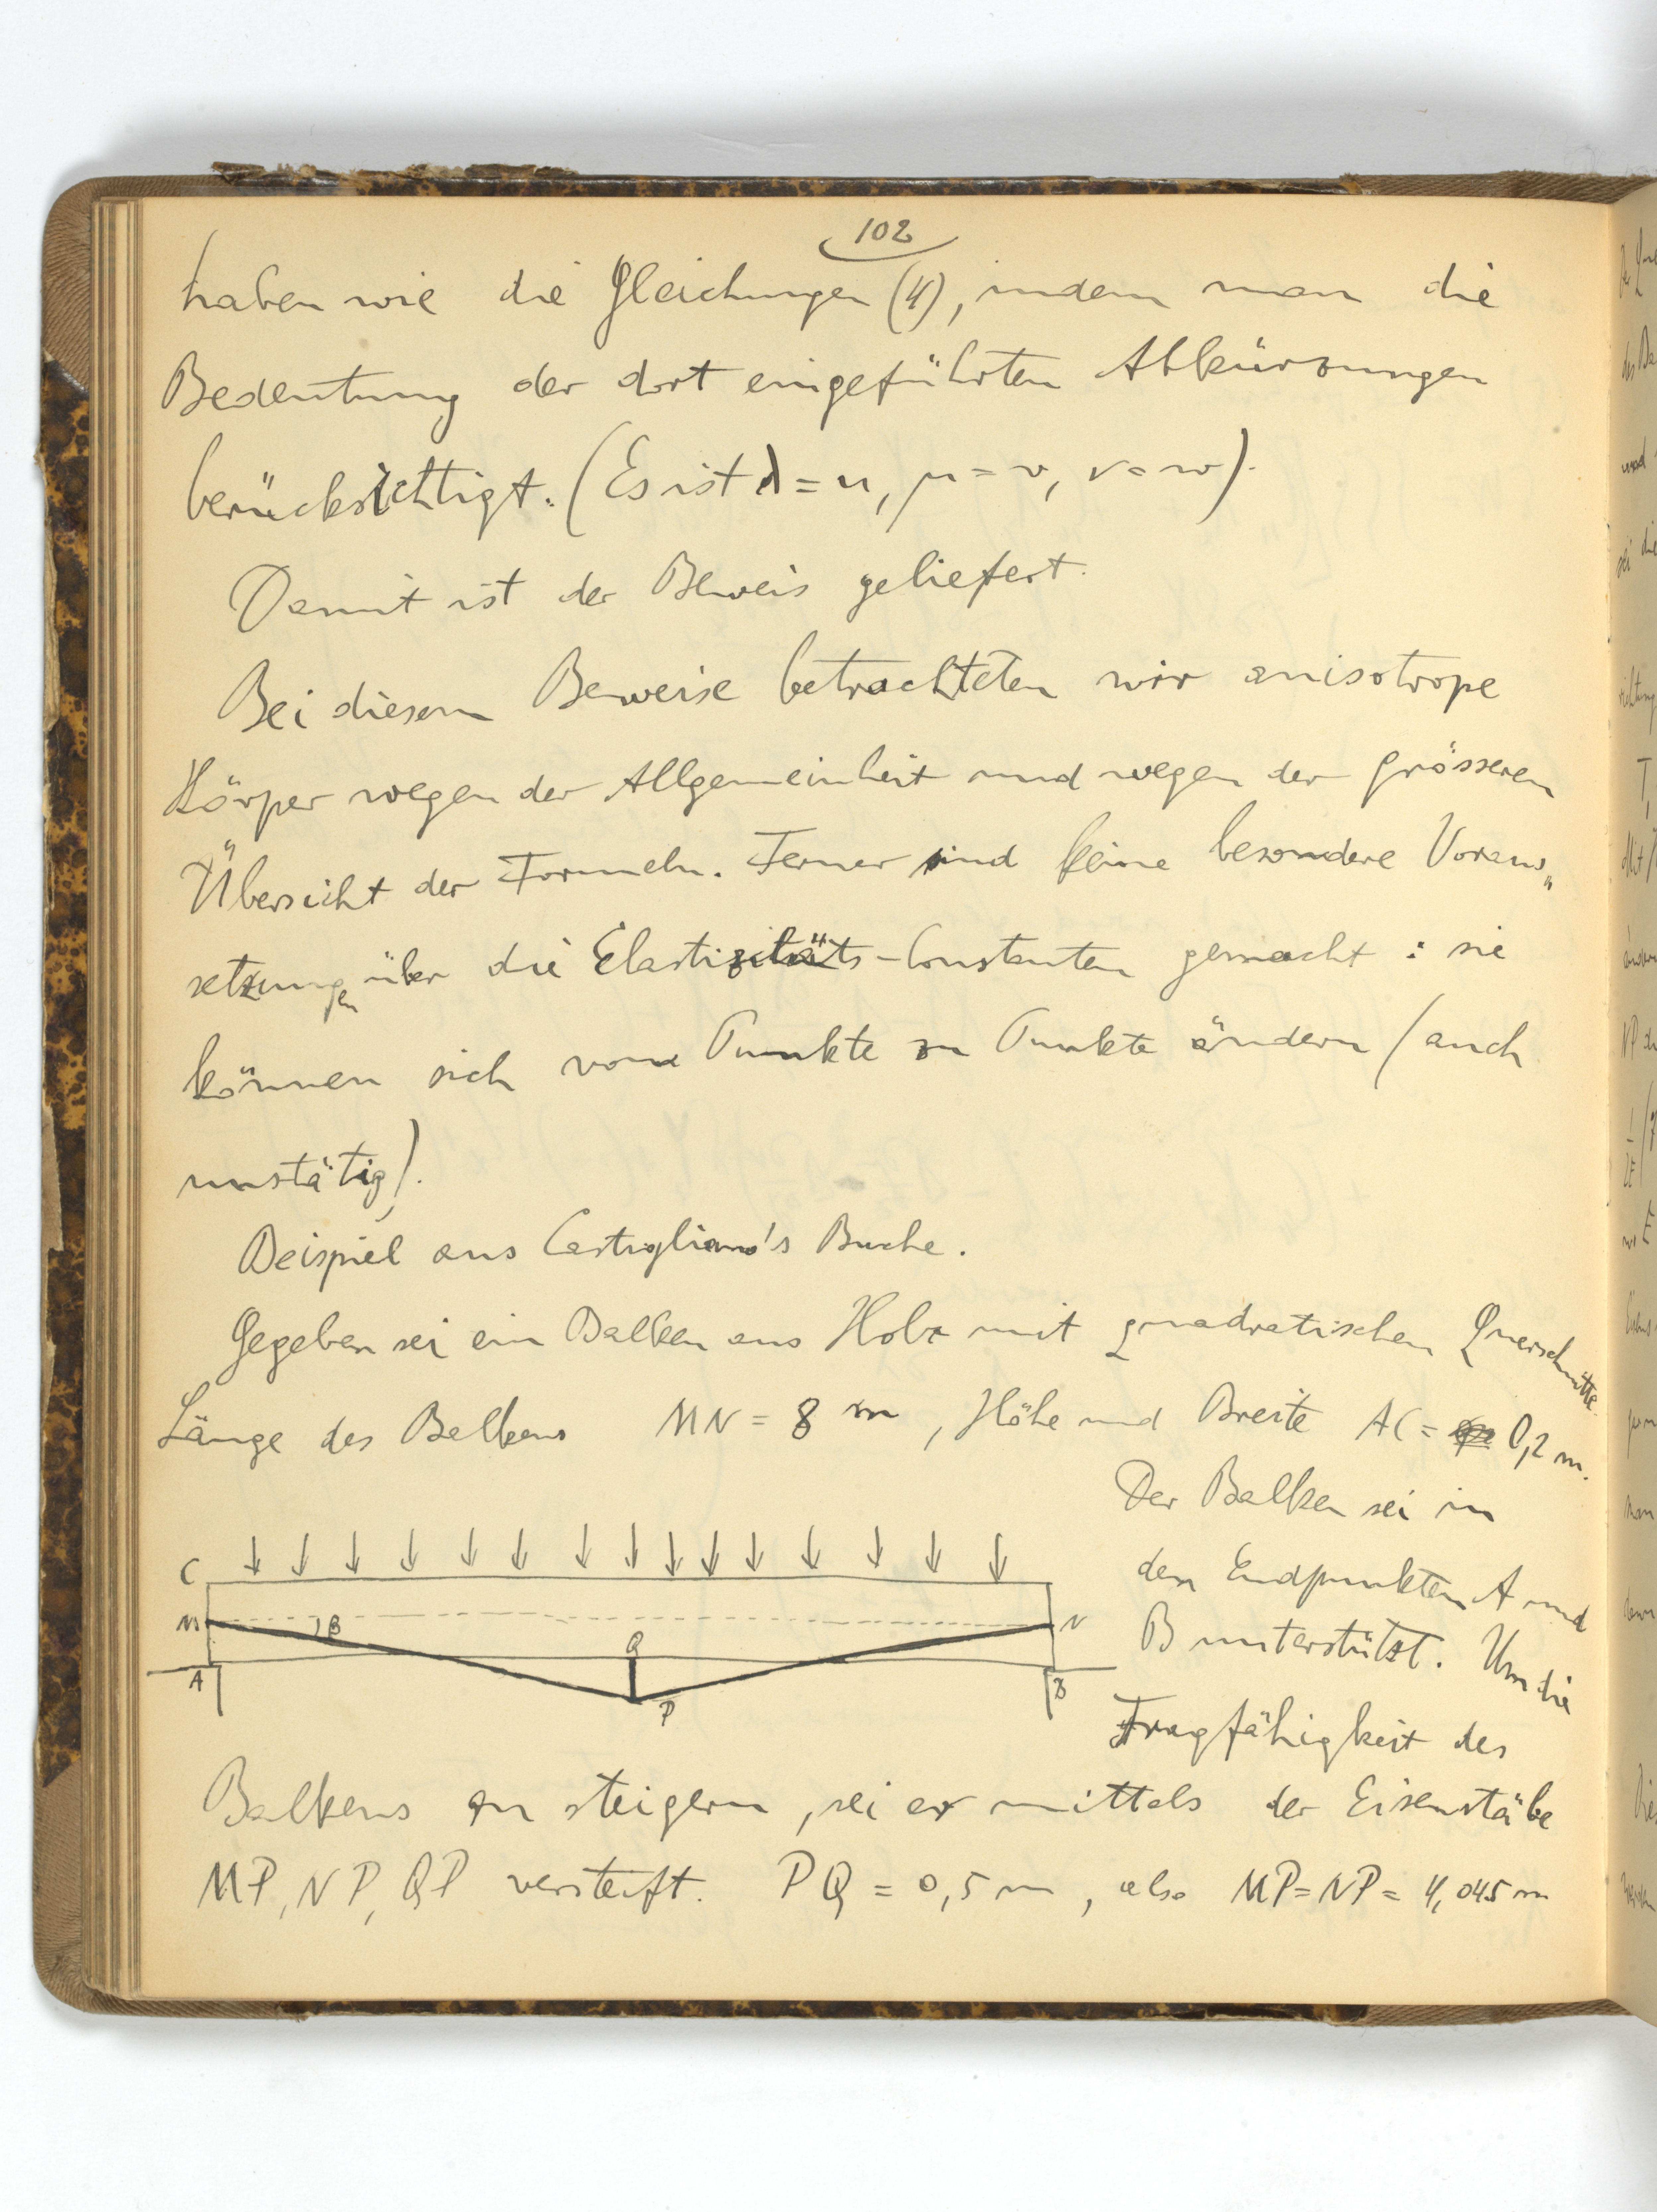 102
haben wie die Gleichungen (4), indem man die
Bedeutung der dort eingeführten Abkürzungen
berücksichtigt. (Es ist λ = u, μ = v, ν = w).
Damit ist der Beweis geliefert.
Bei diesem Beweise betrachteten wir anisotrope
Körper wegen der Allgemeinheit und wegen der grösseren
Übersicht der Formeln. Ferner sind keine besondere Voraus„
setzungen über die Elastizitäts-Constanten gemacht : sie
können sich vom Punkte zu Punkte ändern (auch
unstätig).
Beispiel aus Castigliano's Buche.
Gegeben sei ein Balken aus Holz mit quadratischen Querschnitte.
Länge des Balkens MN = 8 m, Höhe und Breite AC = 0,2 m.
Der Balken sei in
den Endpunkten A und
B unterstützt. Um die
Tragfähigkeit des
C
M
β
Q
N
A
P
B
Balkens zu steigern, sei er mittels der Eisenstäbe
MP, NP, QP versteift. PQ = 0,5 m, also MP = NP = 4,045 m